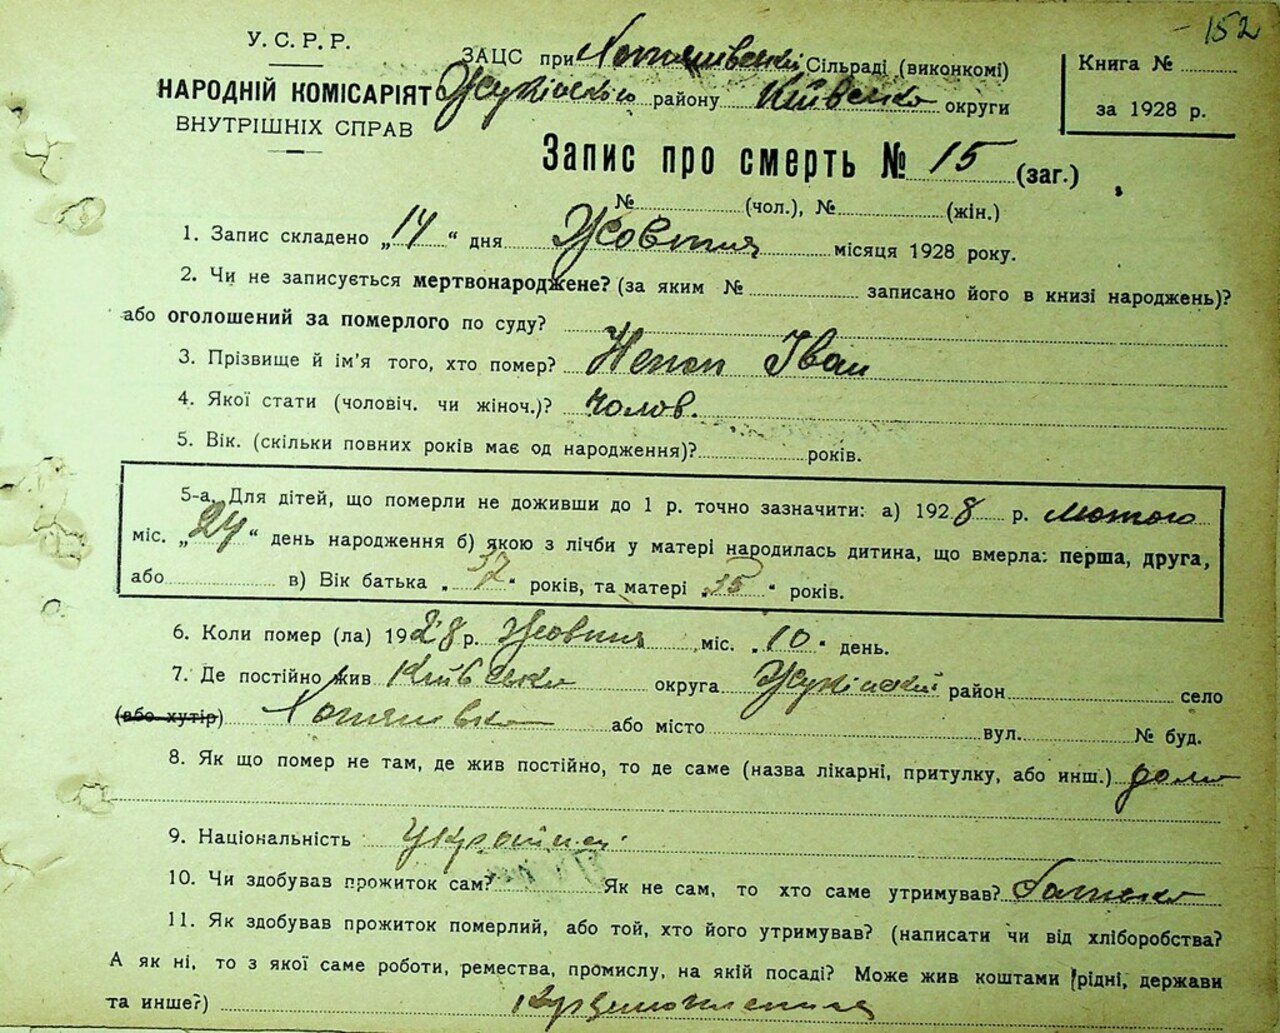 152
У. С. Р. Р.
НАРОДНІЙ КОМІСАРІЯТ
ВНУТРІШНІХ СПРАВ
ЗАЦС при Хотянівській Сільраді (виконкомі)
району Київсько округи
Книга №
за 1928 р.
Запис про смерть № 15 (заг.)
№ (чол.), № (жін.)
1. Запис складено „14“ дня Жовтня місяця 1928 року.
2. Чи не записується мертвонароджене? (за яким № записано його в книзі народжень)?
або оголошений за померлого по суду?
3. Прізвище й ім'я того, хто помер? Непоп Іван
4. Якої стати (чоловіч. чи жіноч.)? чолов.
5. Вік. (скільки повних років має од народження)? років.
5-а. Для дітей, що померли не доживши до 1 р. точно зазначити: а) 1928 р. лютого
міс. „24“ день народження б) якою з лічби у матері народилась дитина, що вмерла: перша, друга,
або в) Вік батька „37“ років, та матері „35“ років.
6. Коли помер (ла) 1928 р. Жовтня міс. „10“ день.
7. Де постійно жив Київсько округа район село
(або хутір) Хотянівка або місто вул. № буд.
8. Як що помер не там, де жив постійно, то де саме (назва лікарні, притулку, або инш.) дома
9. Національність Україн.
10. Чи здобував прожиток сам? Як не сам, то хто саме утримував? батько
11. Як здобував прожиток померлий, або той, хто його утримував? (написати чи від хліборобства?
А як ні, то з якої саме роботи, ремества, промислу, на якій посаді? Може жив коштами рідні, держави
та инше?)